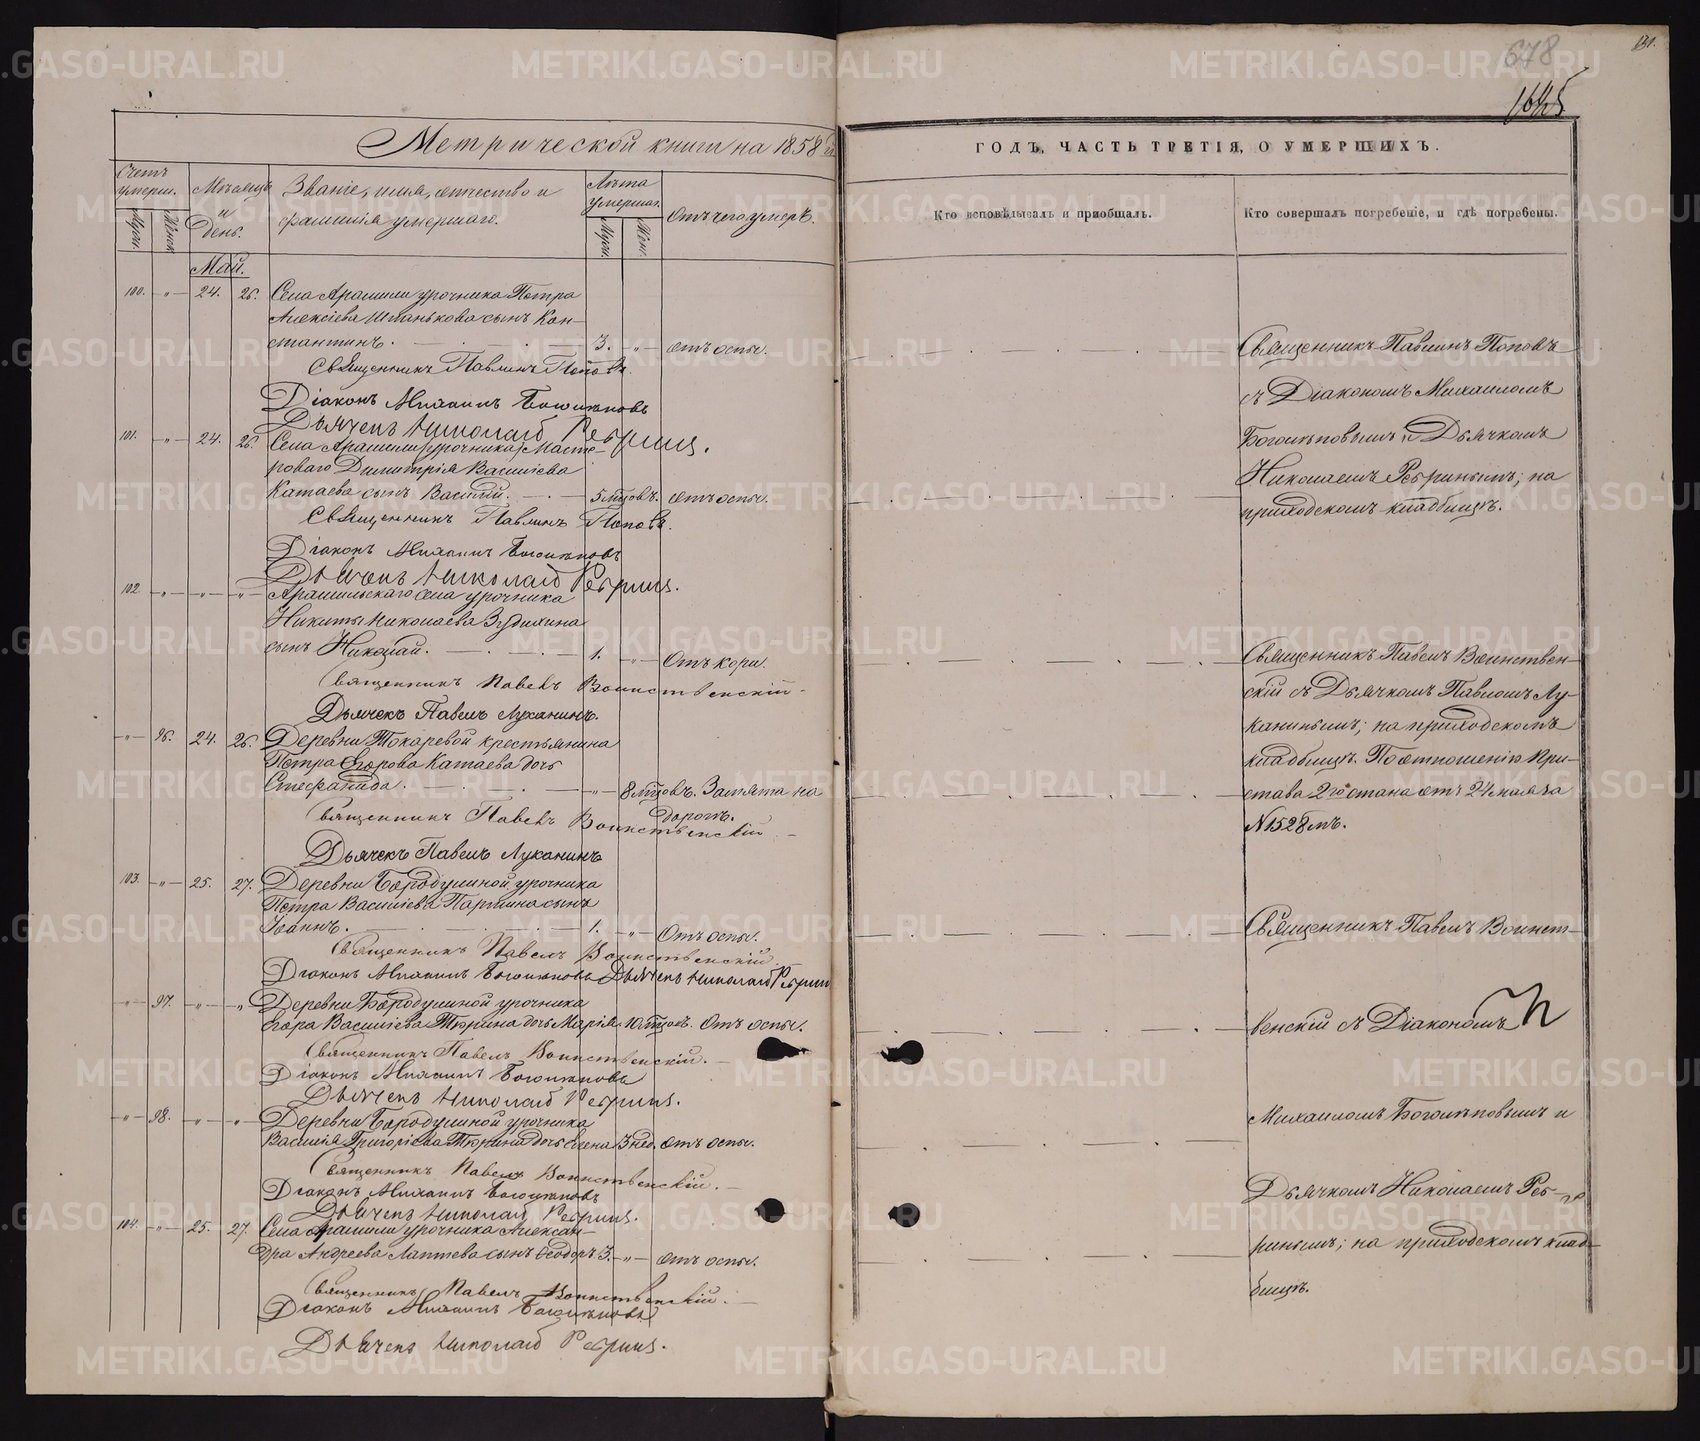 678
131.
1645
Метрической книги на 1858й
ГОДЪ, ЧАСТЬ ТРЕТІЯ, О УМЕРШИХЪ.
Счетъ умерш.
Муж.
Женск.
Мѣсяцъ и День.
Званіе, имя, отчество и фамилія умершаго.
Лѣта умершаг.
Муж.
Жен.
Отъ чего умеръ.
Кто исповѣдывалъ и пріобщалъ.
Кто совершалъ погребеніе, и гдѣ погребены.
Май.
100. -„- 24. 26. Села Арамили урочника Петра
Алексіева Шпанькова сынъ Кон-
стантинъ. 3. -„- отъ оспы.
Священникъ Павлинъ Поповъ.
Діаконъ Михаилъ Боголѣповъ
Дьячекъ Николай Ребринъ.
101. -„- 24. 26. Села Арамили урочника Масте-
роваго Димитрія Васильева
Катаева сынъ Василій. 5 мѣсцовъ. отъ оспы.
Священникъ Павлинъ Поповъ.
Діаконъ Михаилъ Боголѣповъ
Дьячекъ Николай Ребринъ.
102. -„- -„- -„- Арамильскаго села урочника
Никиты Николаева Зудихина
сынъ Николай. 1. -„- Отъ кори.
Священникъ Павелъ Воинственскій
Дьячекъ Павелъ Луканинъ.
-„- 96. 24. 26. Деревни Токаревой крестьянина
Петра Егорова Катаева дочь
Стефанида. -„- 8 мѣсцовъ. Замята на
дорогѣ.
Священникъ Павелъ Воинственскій
Дьячекъ Павелъ Луканинъ
103. -„- 25. 27. Деревни Бородулиной урочника
Петра Васильева Паршина сынъ
Іоаннъ. 1. -„- Отъ оспы.
Священникъ Павелъ Воинственскій
Діаконъ Михаилъ Боголѣповъ Дьячекъ Николай Ребрин
-„- 97. -„- -„- Деревни Бородулиной урочника
Егора Васильева Тюрина дочь Марія 10 мѣсцов. Отъ оспы.
Священникъ Павелъ Воинственскій.
Діаконъ Михаилъ Боголѣповъ
Дьячекъ Николай Ребринъ.
-„- 98. -„- -„- Деревни Бородулиной урочника
Василія Григоріева Тюрина дочь Елена 3 нед. отъ оспы.
Священникъ Павелъ Воинственскій.
Діаконъ Михаилъ Боголѣповъ
Дьячекъ Николай Ребринъ.
104. -„- 25. 27. Села Арамили урочника Алексан-
дра Андреева Лаптева сынъ Ѳеодоръ 3. -„- отъ оспы.
Священникъ Павелъ Воинственскій.
Діаконъ Михаилъ Боголѣповъ
Дьячекъ Николай Ребринъ.
Священникъ Павлинъ Поповъ
съ Діакономъ Михаиломъ
Боголѣповымъ и Дьячкомъ
Николаемъ Ребринымъ; на
приходскомъ кладбищѣ.
Священникъ Павелъ Воинствен-
скій съ Дьячкомъ Павломъ Лу-
канинымъ; на приходскомъ
кладбищѣ. По отношенію При-
става 2го стана отъ 24 мая за
№1528мъ.
Священникъ Павелъ Воинст-
венскій съ Діакономъ
Михаиломъ Боголѣповымъ и
Дьячкомъ Николаемъ Реб-
ринымъ; на приходскомъ клад-
бищѣ.
METRIKI.GASO-URAL.RU